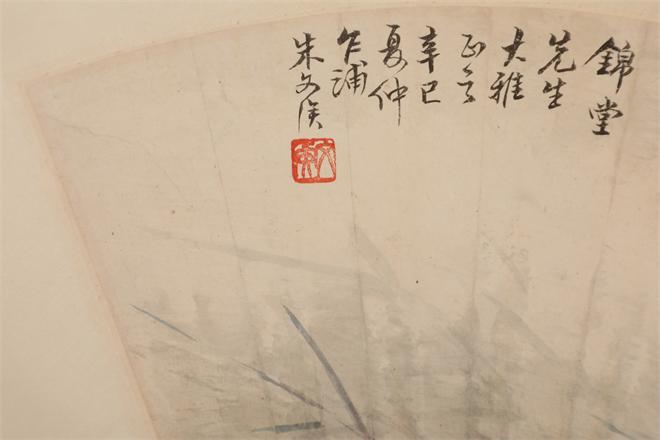 錦堂
先生
大雅
正之
辛巳
夏仲
乍浦
朱文侯
文侯